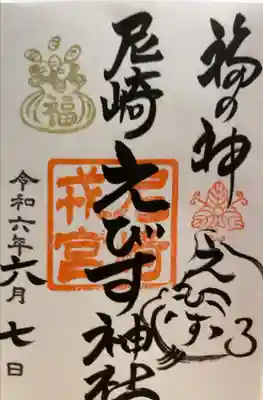 福の神
えびす
尼崎
えびす神社
尼崎
戎宮
福
令和六年六月七日